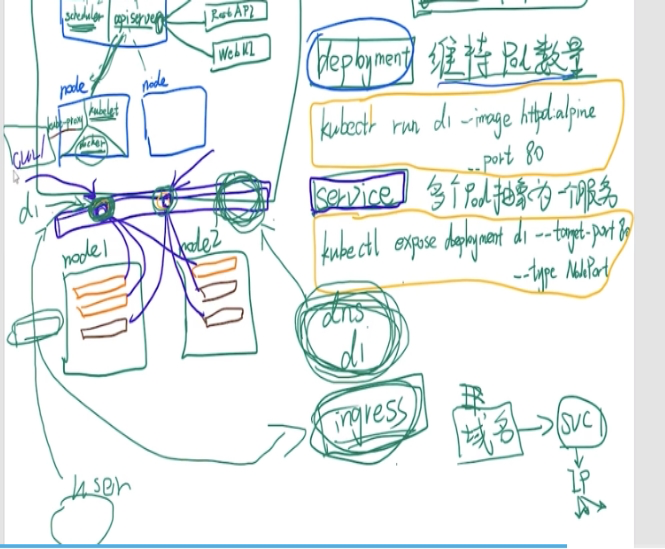 scheduler apiserver
RestAPI
WebUI
node node
kubelet
kube-proxy
docker
curl
d1
node1 node2
user
deployment 维持Pod数量
kubectr run d1 --image httpd:alpine
--port 80
service 多个Pod抽象为一个服务
kubectl expose deployment d1 --target-port 80
--type NodePort
dns
d1
ingress
域名 → svc
IP